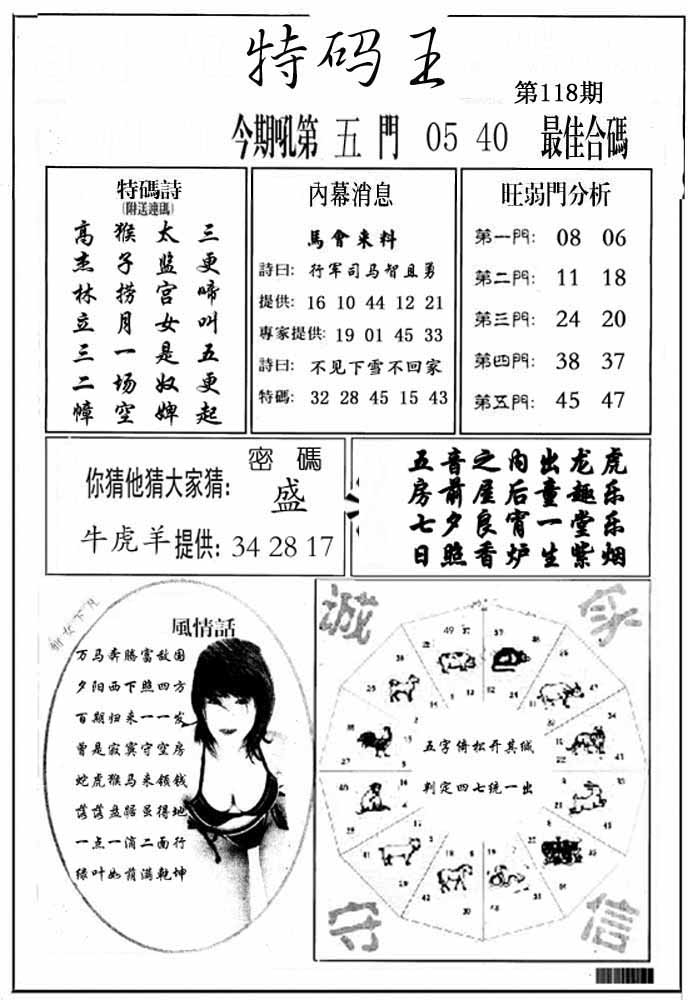 特码王
第118期
今期吼第 五 門 05 40 最佳合碼
特碼詩
(附送連碼)
三更啼叫五更起
太监宫女是奴婢
猴子捞月一场空
高杰林立三二幛
內幕消息
馬會来料
詩曰: 行军司马智且勇
提供: 16 10 44 12 21
專家提供: 19 01 45 33
詩曰: 不见下雪不回家
特碼: 32 28 45 15 43
旺弱門分析
第一門: 08 06
第二門: 11 18
第三門: 24 20
第四門: 38 37
第五門: 45 47
密碼
你猜他猜大家猜: 盛
牛虎羊 提供: 34 28 17
五音之内出龙虎
房前屋后童趣乐
七夕良宵一堂乐
日照香炉生紫烟
風情話
万马奔腾富敌国
夕阳西下照四方
百期归来一一发
曾是寂寞守空房
蛇虎猴马来领钱
一点一滴二面行
绿叶如荫满乾坤
诚
守
信
五字倚松开其绒
判定四七统一出